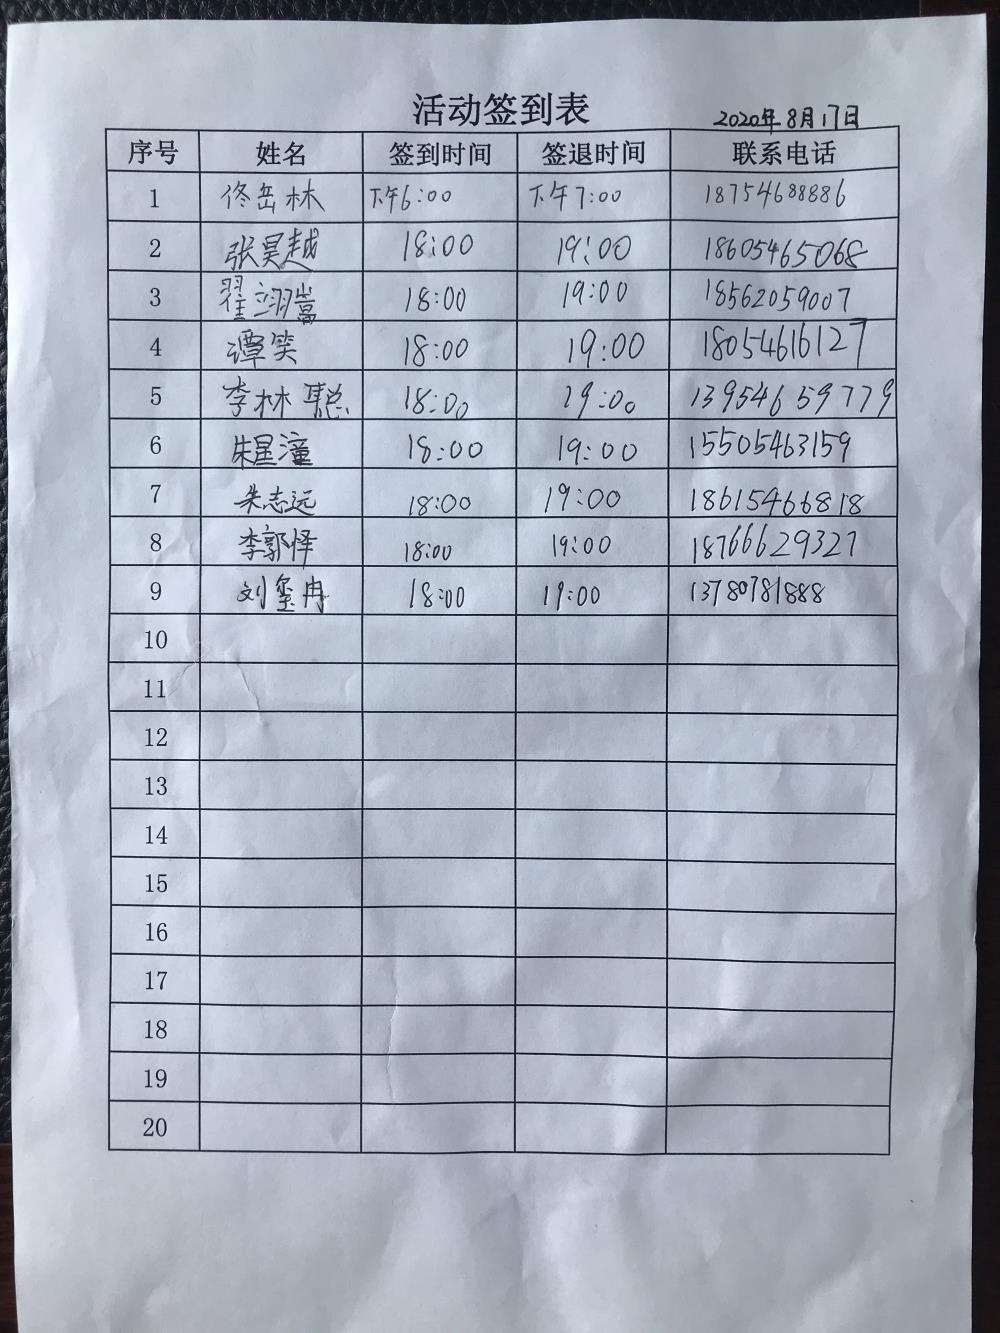 活动签到表
2020年8月17日
序号 姓名 签到时间 签退时间 联系电话
1 佟岳林 下午6:00 下午7:00 18754688886
2 张昊越 18:00 19:00 18605465068
3 翟翊嵩 18:00 19:00 18562059007
4 谭笑 18:00 19:00 18054616127
5 李林聪 18:00 19:00 13954659779
6 朱星潼 18:00 19:00 15505463159
7 朱志远 18:00 19:00 18615466818
8 李郭怿 18:00 19:00 18766629327
9 刘玺冉 18:00 19:00 13780781888
10
11
12
13
14
15
16
17
18
19
20